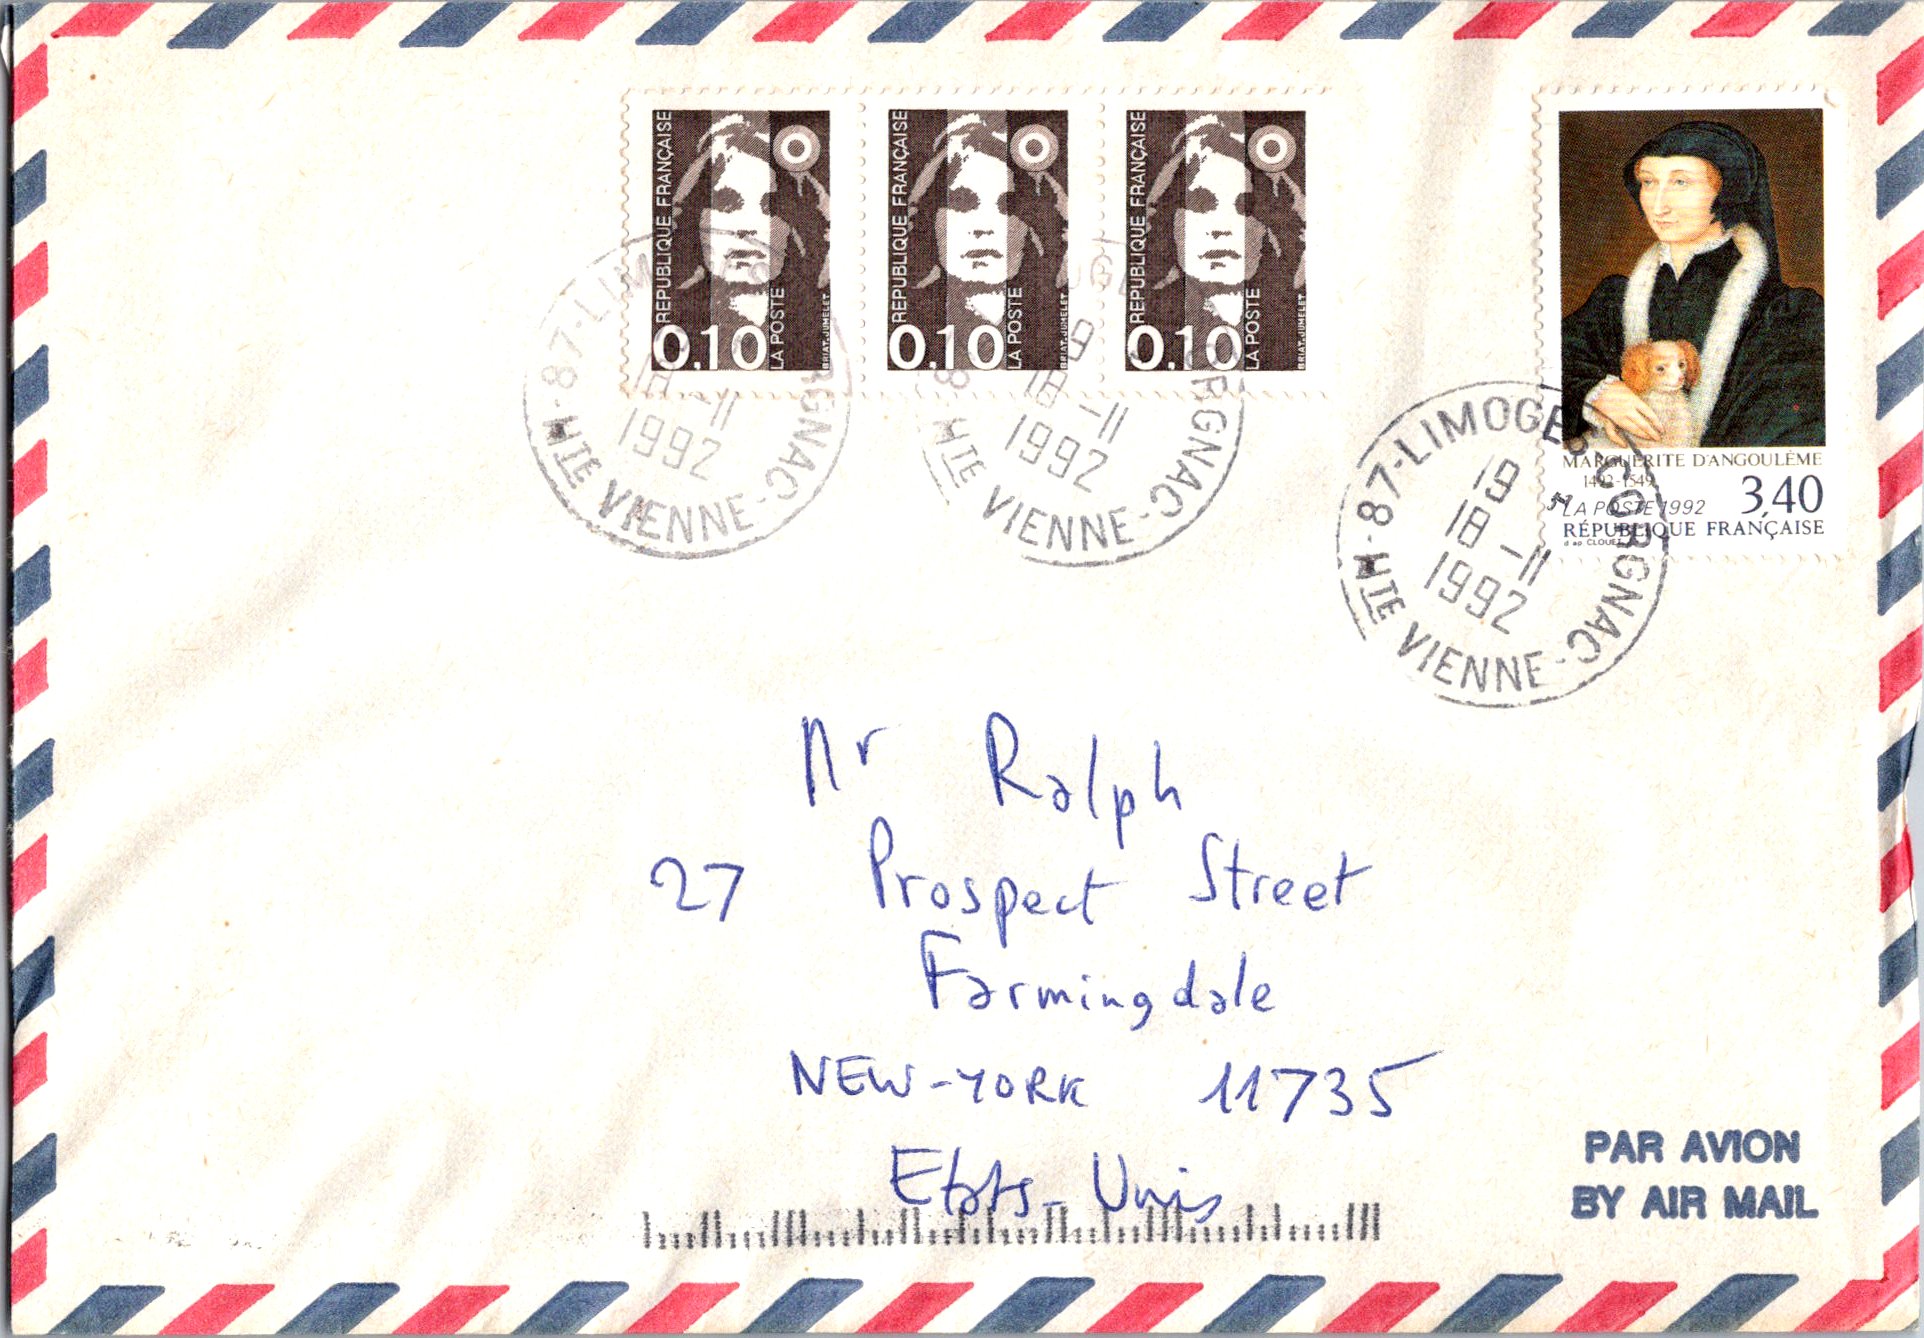 REPUBLIQUE FRANÇAISE
0,10
LA POSTE
BRIAT-JUMELET
REPUBLIQUE FRANÇAISE
0,10
LA POSTE
BRIAT-JUMELET
REPUBLIQUE FRANÇAISE
0,10
LA POSTE
BRIAT-JUMELET
MARGUERITE D'ANGOULÊME
1492-1549
3,40
LA POSTE 1992
RÉPUBLIQUE FRANÇAISE
d'ap CLOUET
87-LIMOGES CORGNAC-
18 -11
1992
HTE VIENNE
19
18 -11
1992
87-LIMOGES CORGNAC-
HTE VIENNE
87-LIMOGES CORGNAC-
19
18 -11
1992
HTE VIENNE
Mr Ralph
27 Prospect Street
Farmingdale
NEW-YORK 11735
Etats-Unis
PAR AVION
BY AIR MAIL